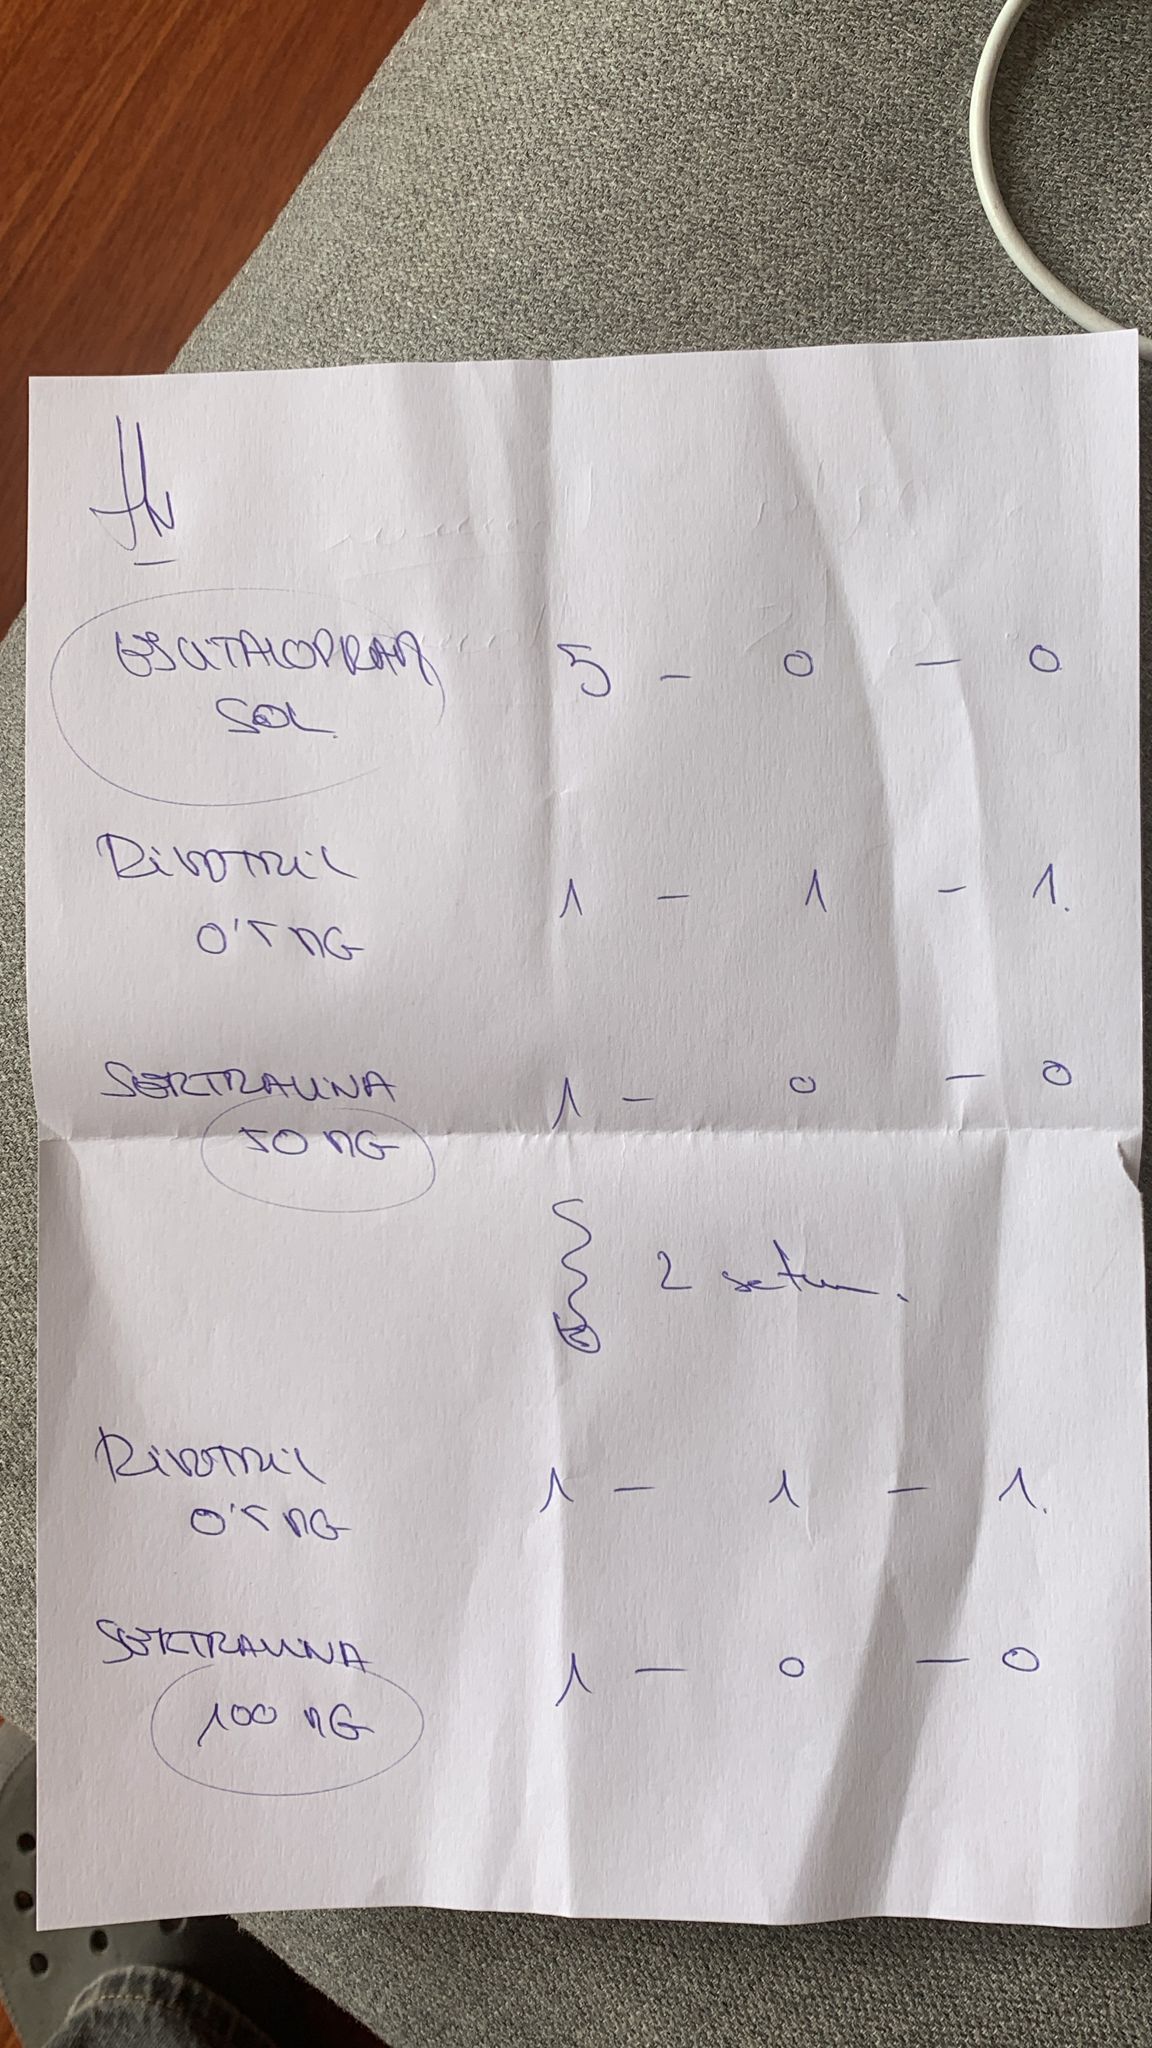 ESCITALOPRAM 5 - 0 - 0
SOL.
RIVOTRIL 1 - 1 - 1.
0'5 MG
SERTRALINA 1 - 0 - 0
50 MG
2 setm.
RIVOTRIL 1 - 1 - 1.
0'5 MG
SERTRALINA 1 - 0 - 0
100 MG